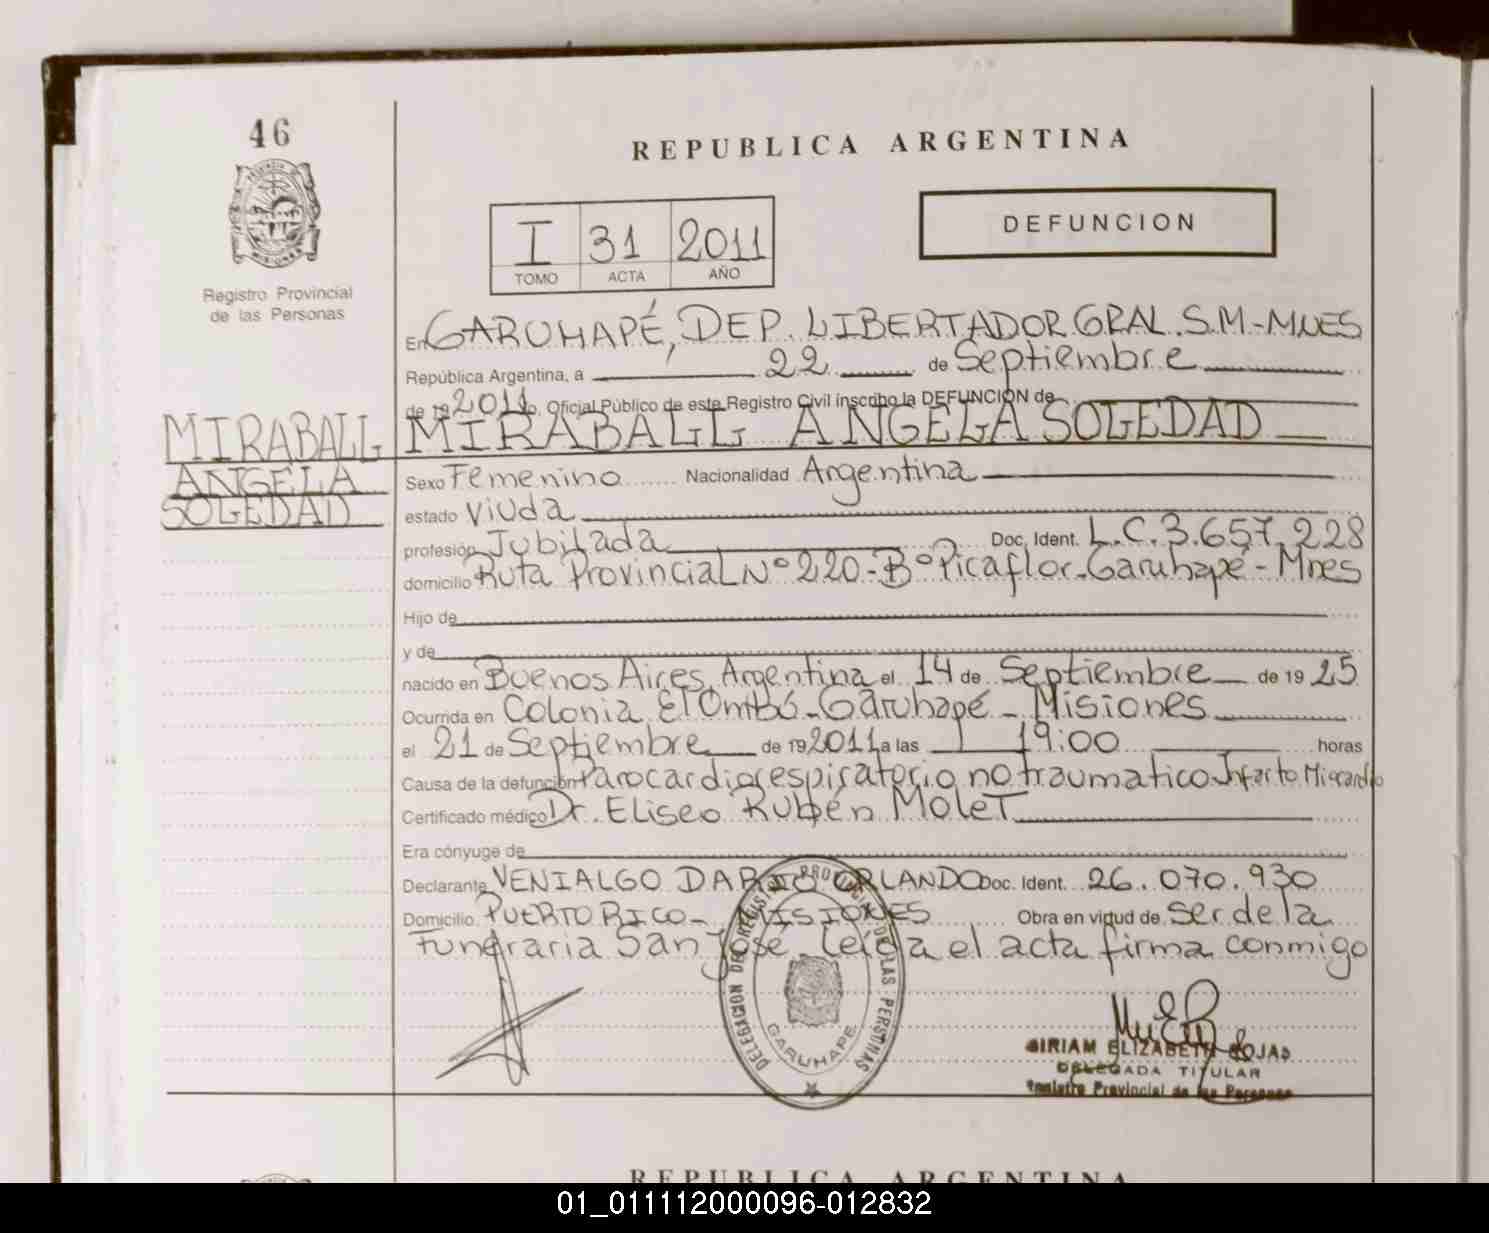 46
REPUBLICA ARGENTINA
I 31 2011
TOMO ACTA AÑO
DEFUNCION
Registro Provincial
de las Personas
En GARUHAPÉ, DEP. LIBERTADOR GRAL. S.M.-MNES
República Argentina, a 22 de Septiembre
de 19 2011 yo, Oficial Público de este Registro Civil inscribo la DEFUNCION de
MIRABALL ANGELA SOLEDAD
MIRABALL
ANGELA
SOLEDAD
Sexo Femenino Nacionalidad Argentina
estado Viuda
profesión Jubilada Doc. Ident. L.C. 3.657.228
domicilio Ruta Provincial Nº 220-Bº Picaflor-Garuhapé-Mnes
Hijo de
y de
nacido en Buenos Aires, Argentina el 14 de Septiembre de 19 25
Ocurrida en Colonia El Ombú-Garuhapé-Misiones
el 21 de Septiembre de 19 2011 a las 19:00 horas
Causa de la defunción Parocardiorespiratorio no traumatico Infarto Miocardio
Certificado médico Dr. Eliseo Rubén Molet
Era cónyuge de
Declarante VENIALGO DARIO ORLANDO Doc. Ident. 26.070.930
Domicilio PUERTO RICO-MISIONES Obra en virtud de Ser de la
Funeraria San José Leída el acta firma conmigo
DELEGACION DEL REGISTRO PROVINCIAL DE LAS PERSONAS
GARUHAPE
MIRIAM ELIZABETH ROJAS
DELEGADA TITULAR
Registro Provincial de las Personas
REPUBLICA ARGENTINA
01_011112000096-012832